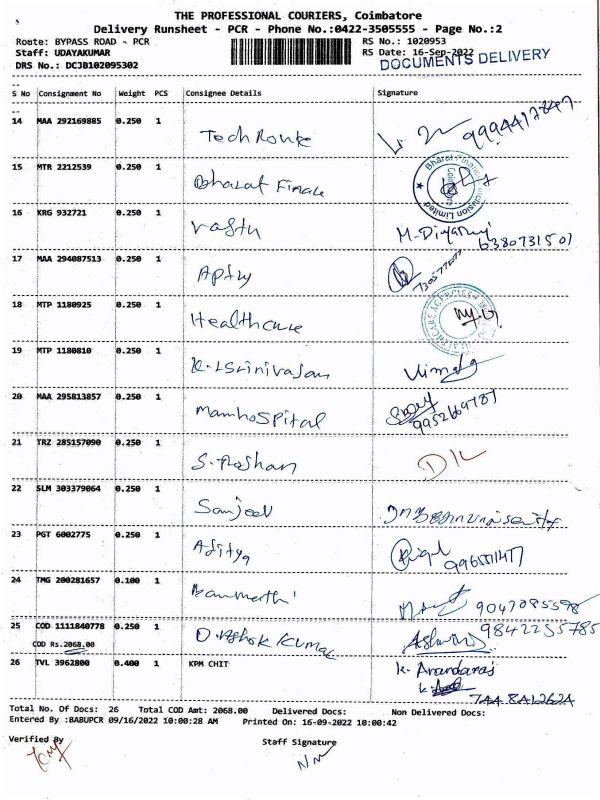 THE PROFESSIONAL COURIERS, Coimbatore
Delivery Runsheet - PCR - Phone No.:0422-3505555 - Page No.:2
Route: BYPASS ROAD - PCR
RS No.: 1020953
Staff: UDAYAKUMAR
RS Date: 16-Sep-2022
DRS No.: DCJB102095302
DOCUMENTS DELIVERY
S No Consignment No Weight PCS Consignee Details Signature
14 MAA 292169885 0.250 1
15 MTR 2212539 0.250 1 Bharat Financial Inclusion Limited Coimbatore
16 KRG 932721 0.250 1 Vastu 6380731501
17 MAA 294087513 0.250 1
18 MTP 1180925 0.250 1 Healthcare
19 MTP 1180810 0.250 1 K. Srinivasan
20 MAA 295813857 0.250 1 Mamhospital
21 TRZ 285157090 0.250 1 S. Roshan
22 SLM 303379064 0.250 1 Sanjeev
23 PGT 6002775 0.250 1 Aditya
24 TMG 200281657 0.100 1 9047085598
25 COD 1111840778 0.250 1 D. Ashok Kumar 9842235785
COD Rs.2068.00
26 TVL 3962800 0.400 1 KPM CHIT K. Anandaraj
Total No. Of Docs: 26 Total COD Amt: 2068.00 Delivered Docs: Non Delivered Docs:
Entered By :BABUPCR 09/16/2022 10:00:28 AM Printed On: 16-09-2022 10:00:42
Verified By Staff Signature